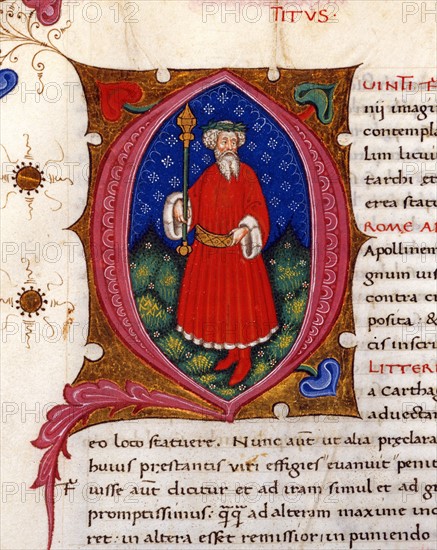 TITUS·
UINTI F
nij imagi
contempla
lum liciu
tarchi
erea statu
ROME A
Apollinem
gnum uis
contra
posita: &
cis inscri
LITTER
a Carthag
aduectam
eo loco statuere. Nunc aūt ut alia preclara
huius prestantis uiri effigies euanuit penit
Fuisse aūt dicitur et ad iram simul et ad g
promptissimus: q̄q̄ ad alteram maxime ind
ret: in altera esset remissior: in puniendo